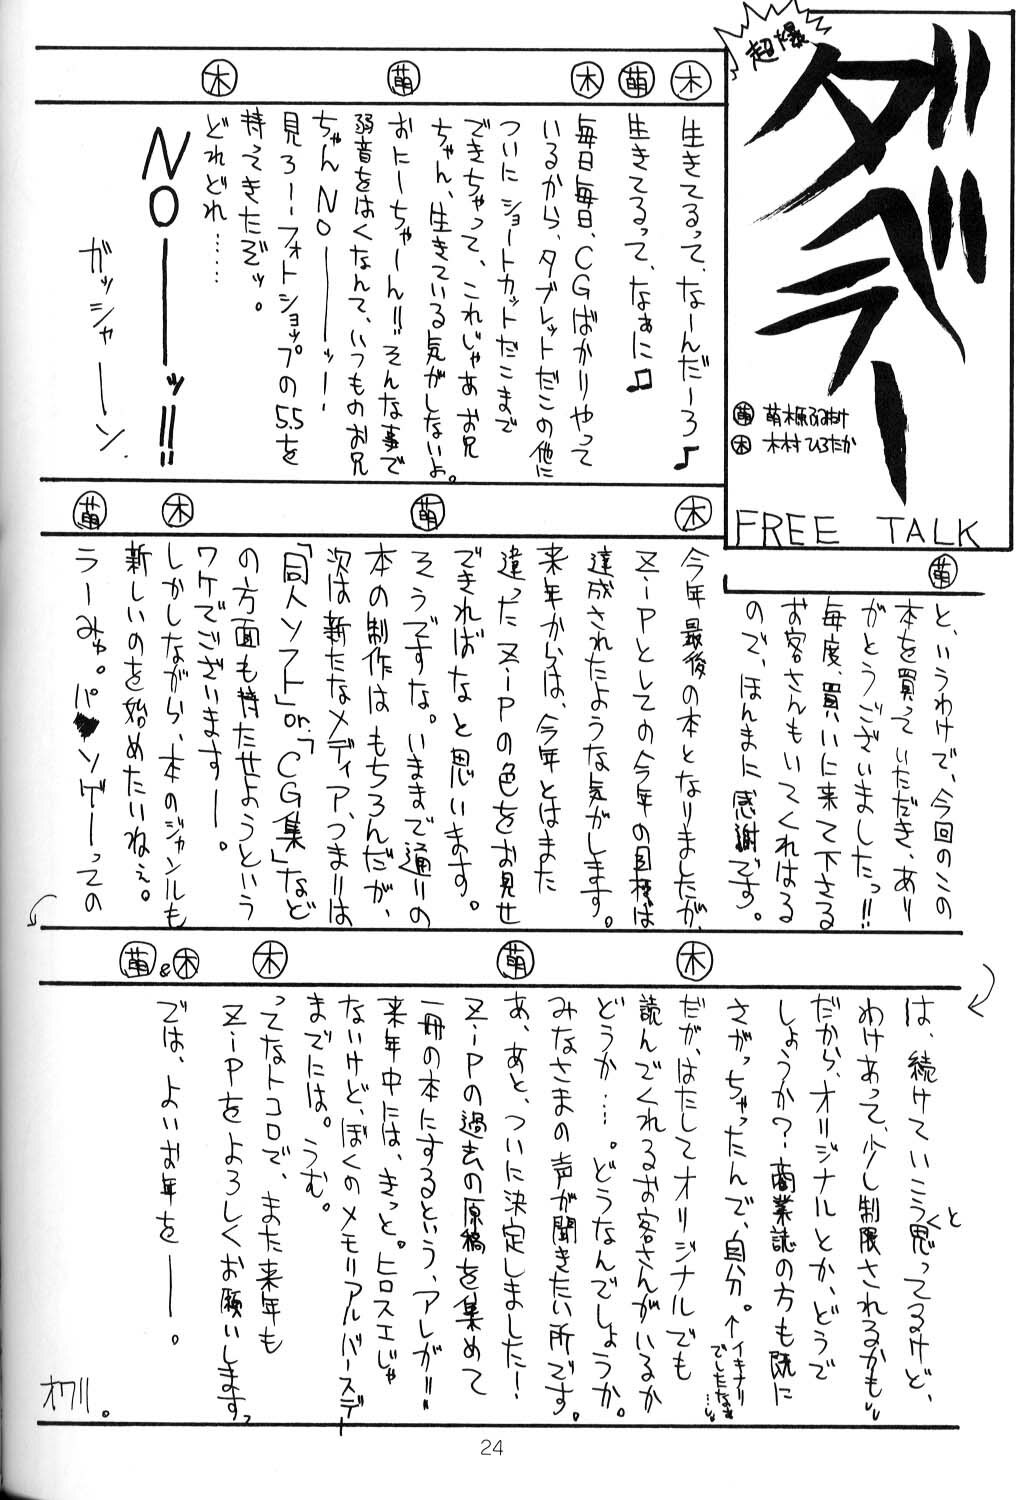 超爆
ダベラー
萌 萌木原ふみたけ
木 木村ひろたか
FREE TALK
木
生きてるって、なーんだーろ♪
萌
生きてるって、なぁに♫
木
毎日毎日、CGばかりやって
いるから、タブレットだこの他に
ついにショートカットだこまで
できちゃって、これじゃあお兄
ちゃん、生きている気がしないよ。
萌
おにーちゃーん!!そんな事で
弱音をはくなんて、いつものお兄
ちゃんNOーーーッ!
見ろーーフォトショップの5.5を
持ってきたぞッ。
木
どれどれ……
NOーーーッ!!
ガッシャーーン.
萌
と、いうわけで、今回のこの
本を買っていただき、あり
がとうございましたっ!!
毎度、買いに来て下さる
お客さんもいてくれはる
ので、ほんまに感謝です。
木
今年最後の本となりましたが、
Z-iPとしての今年の目標は
達成されたような気がします。
来年からは、今年とはまた
違ったZ-iPの色をお見せ
できればなと思います。
萌
そうですな。いままで通りの
本の制作はもちろんだが、
次は新たなメディア、つまりは
「同人ソフト」or「CG集」など
の方面も持たせようという
ワケでございますー。
木
しかしながら、本のジャンルも
新しいのを始めたいねぇ。
萌
ラーみゅ。パ♥ソゲーっての
は、続けていこうと思ってるけど、
わけあって、少し制限されるかも、、
だから、オリジナルとか、どうで
しょうか?商業誌の方も既に
さがっちゃったんで、自分。↑イキナリ
でしたなぁ…、、
木
だが、はたしてオリジナルでも
読んでくれるお客さんがいるか
どうか…。どうなんでしょうか。
みなさまの声が聞きたい所です。
萌
あ、あと、ついに決定しました!
Z-iPの過去の原稿を集めて
一冊の本にするという、アレが!!
来年中には、きっと。ヒロスエじゃ
ないけど、ぼくのメモリアルバースデー
までには。うむ。
木
ってなトコロで、また来年も
Z-iPをよろしくお願いします。
萌&木
では、よいお年をーー。
オワリ。
24